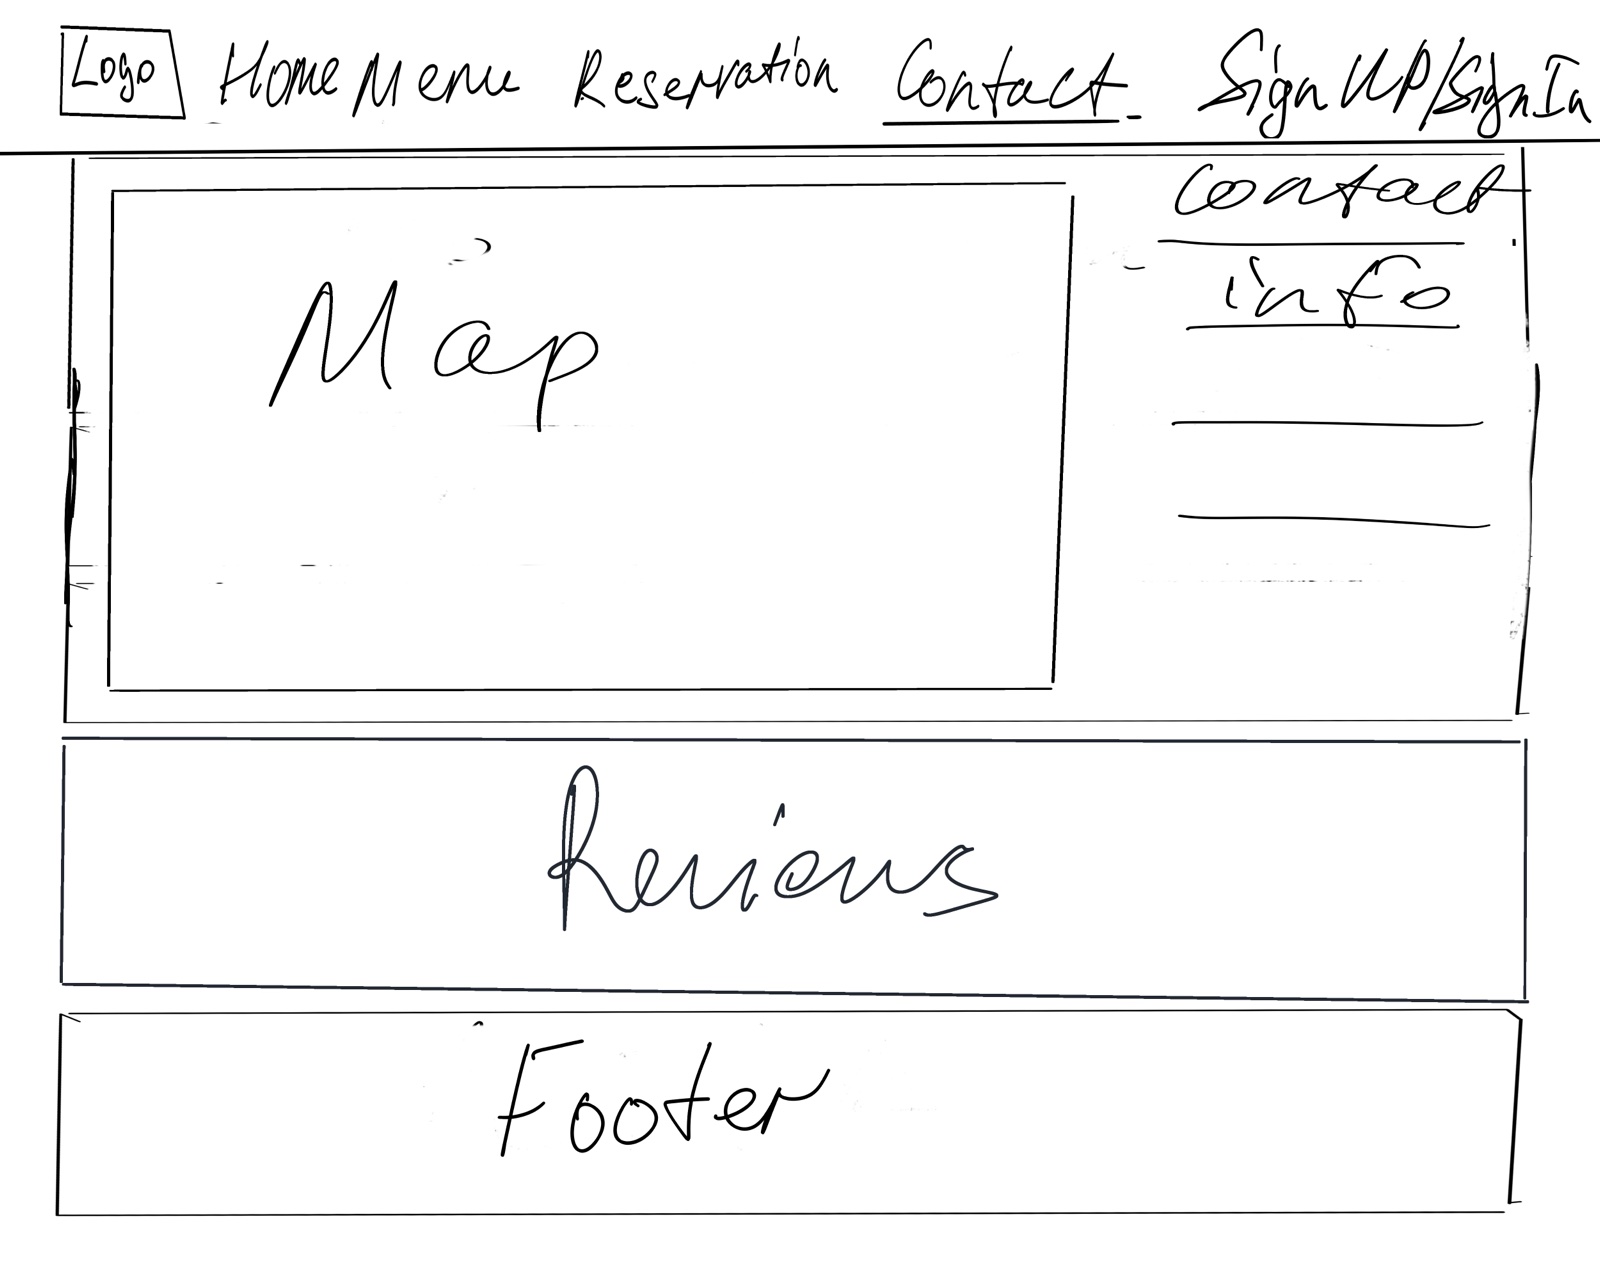 Logo Home Menu Reservation Contact Sign UP/Sign In
Contact
info
Map
Reviews
Footer